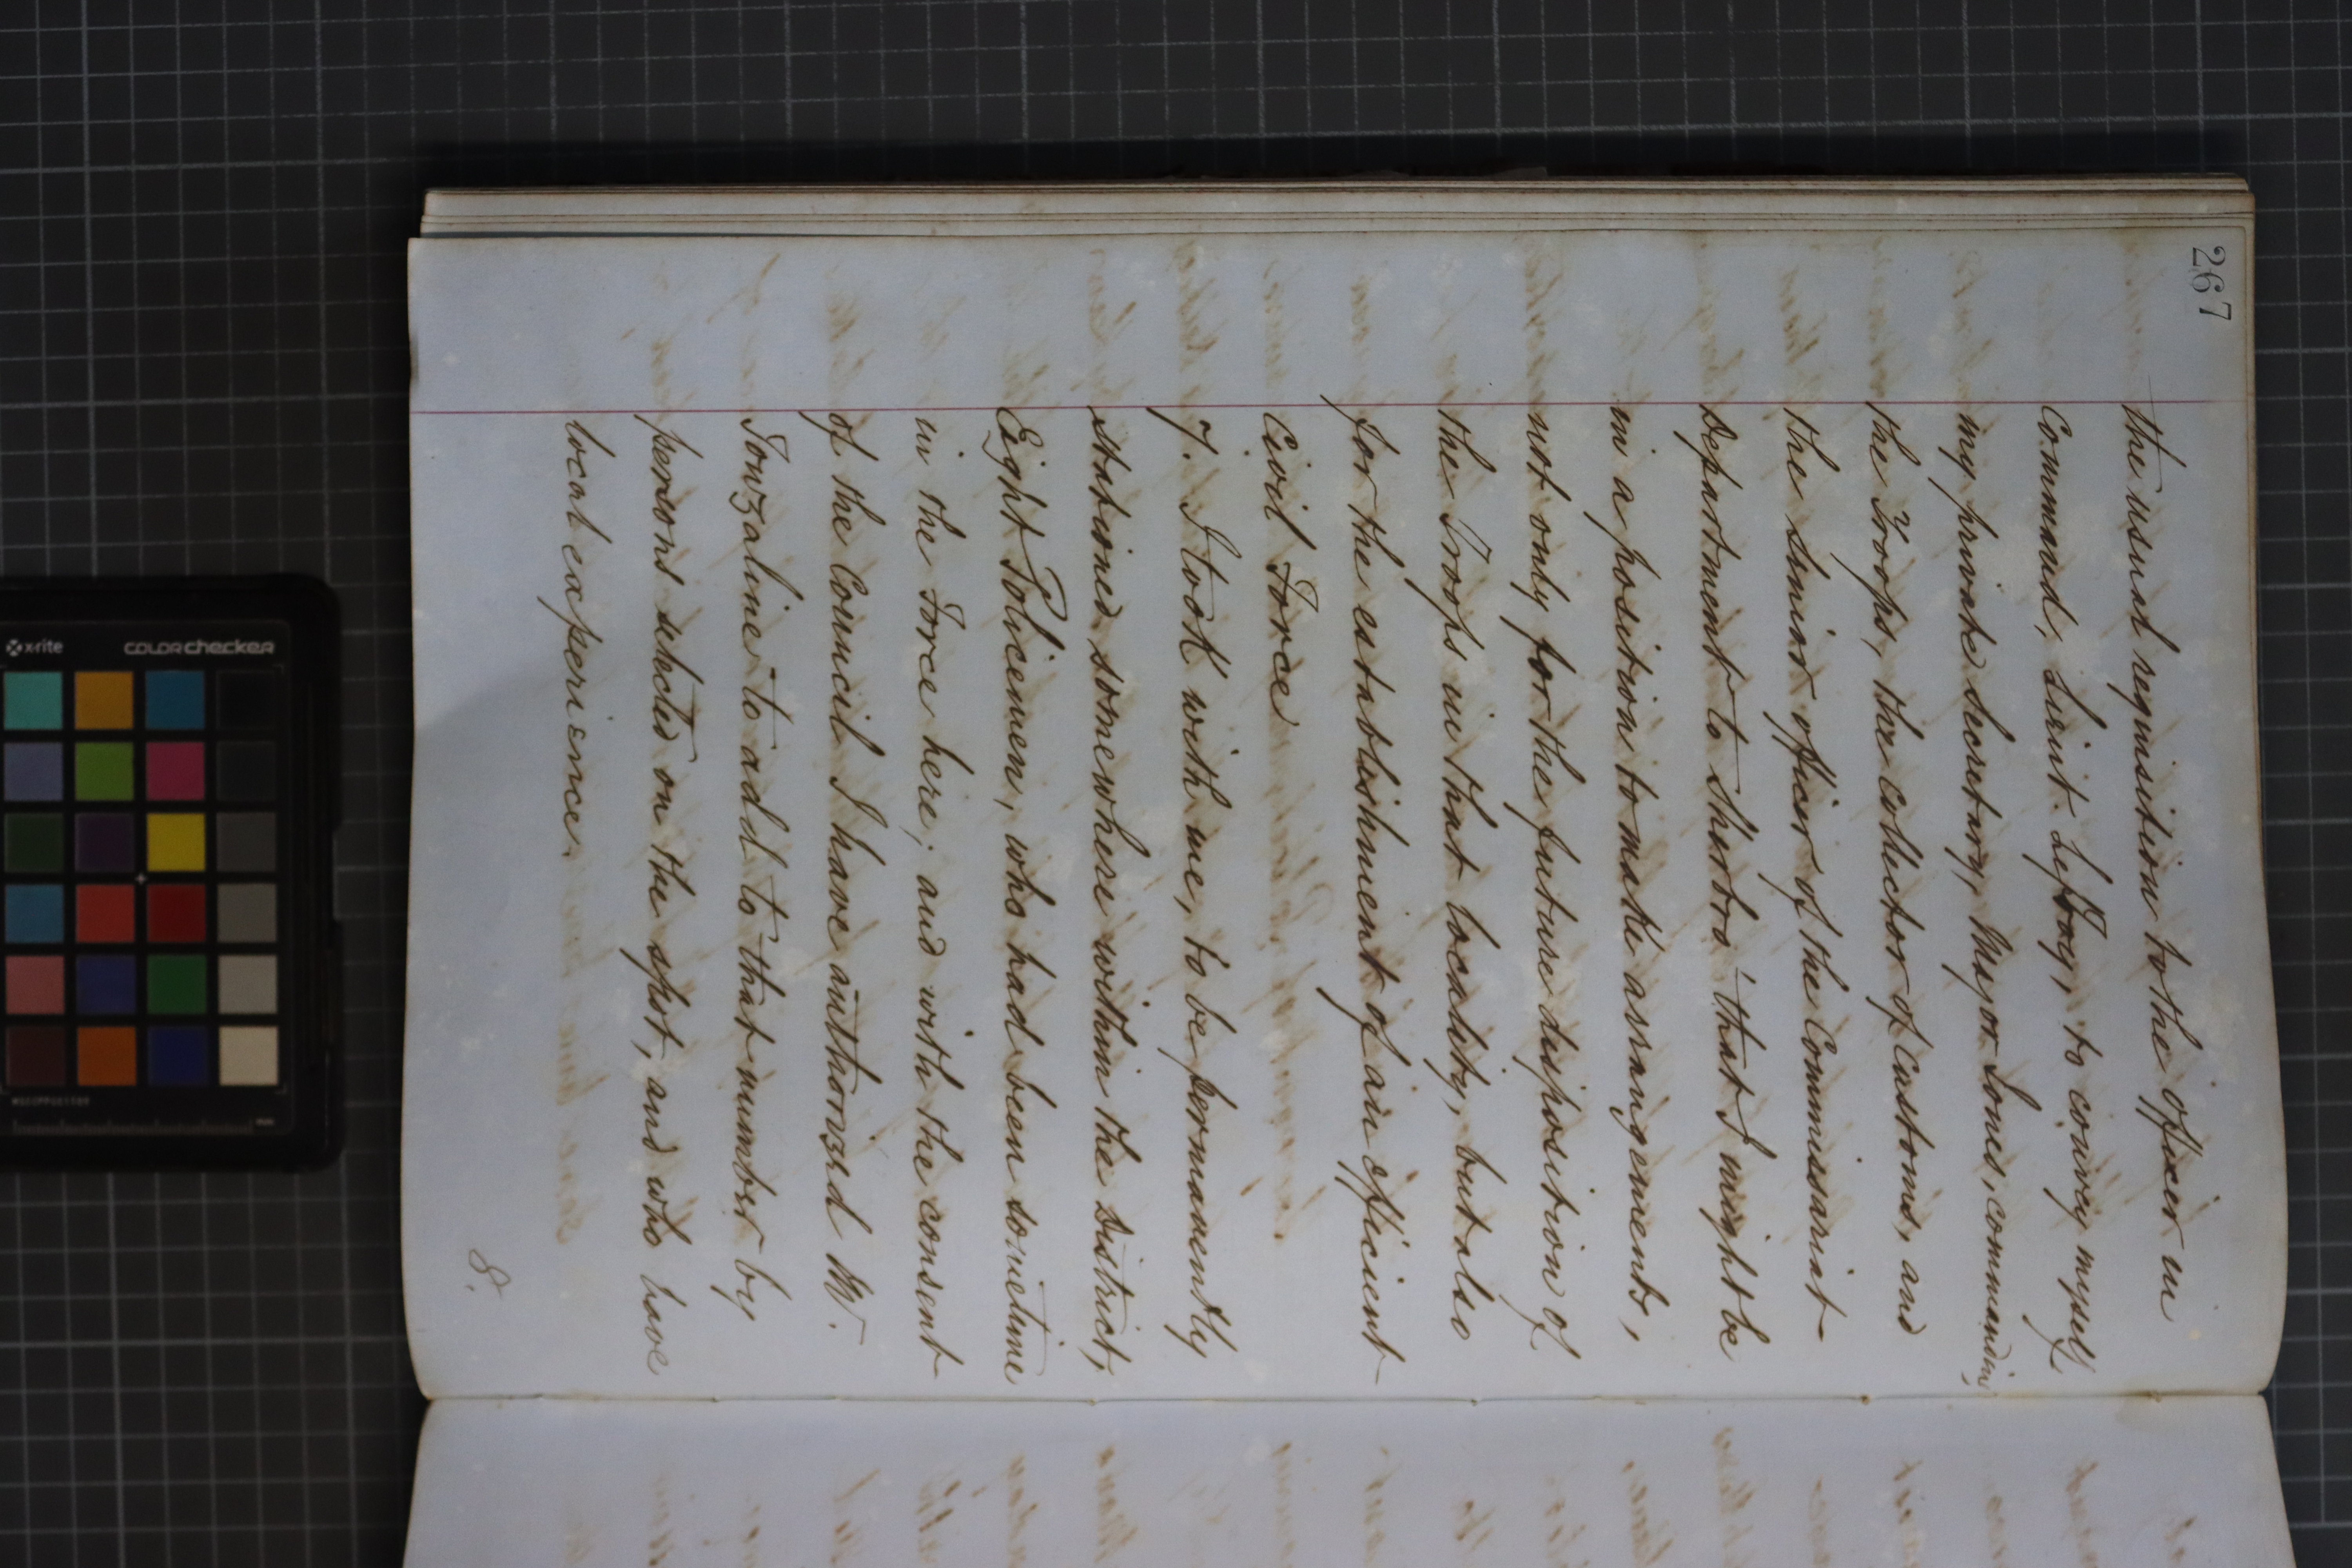 267
the usual requisition to the officer in
Command, Lieut. Lefroy, to convey myself,
my private Secretary, Major Jones, commanding
the Troops, the Collector of Customs, and
the Senior officer of the Commissariat
Department to Sherbro' that I might be
in a position to make arrangements,
not only for the future disposition of
the Troops in that locality, but also
for the establishment of an efficient
Civil Force
7. I took with me, to be permanently
stationed somewhere within the District,
Eight Policemen, who had been sometime
in the Force here; and with the consent
of the Council I have authorized Mr.
Towzaline to add to that number by
persons selected on the spot, and who have
local experience.
8.
x-rite
colorchecker